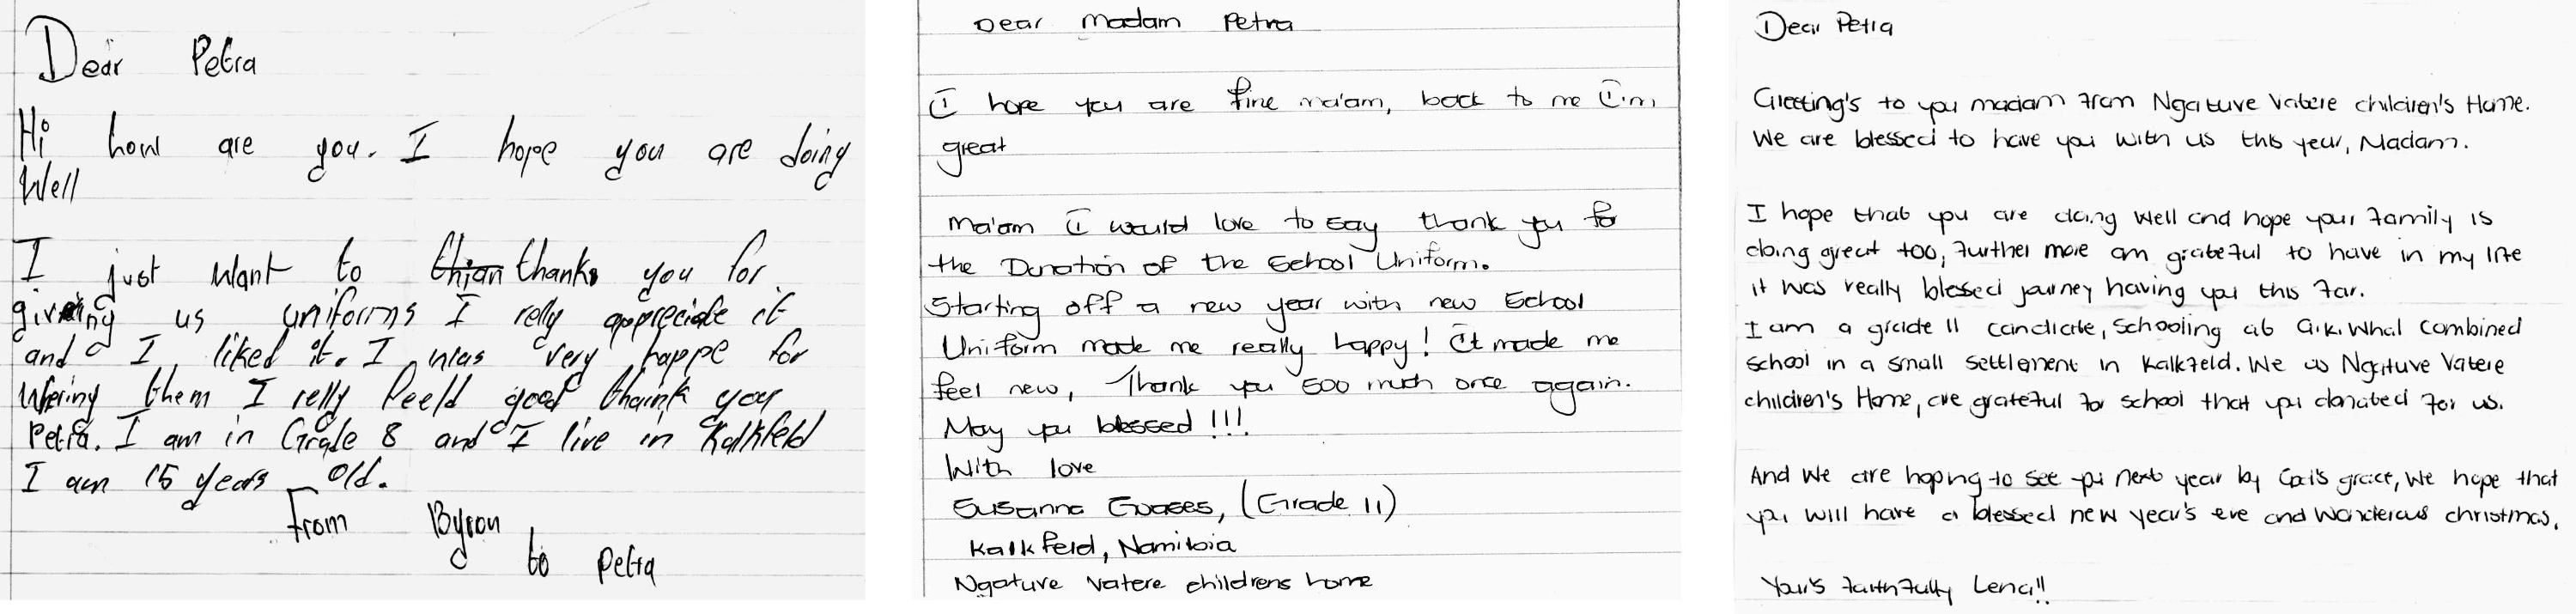 Dear Petra
Hi how are you. I hope you are doing
Well
I just want to thian thanks you for
giveing us uniforms I relly appreciate it
and I liked it. I was very happe for
Wering them I relly feeld good thaink you
Petra. I am in Grade 8 and I live in Kalkfeld
I am 15 years old.
From Byron
to Petra
Dear Madam Petra
I hope you are fine ma'am, back to me I'm
great
Ma'am I would love to say thank you fo
the Donation of the School Uniform.
Starting off a new year with new School
Uniform made me really happy! It made me
feel new, Thank you soo much once again.
May you blessed !!!
With love
Susanna (Grade 11)
Kalkfeld, Namibia
Ngatuve Vatere childrens home
Dear Petra
Greeting's to you madam from Ngatuve Vatere children's Home.
We are blessed to have you with us this year, Madam.
I hope that you are doing well and hope your family is
doing great too, further more am grateful to have in my life
it was really blessed journey having you this far.
I am a grade 11 candicate, schooling at G.K. Whal combined
school in a small settlement in Kalkfeld. We as Ngatuve Vatere
children's Home, are grateful for school that you donated for us.
And we are hoping to see you next year by God's grace, We hope that
you will have a blessed new year's eve and wonderous christmas.
Your's faithfully Lena!!